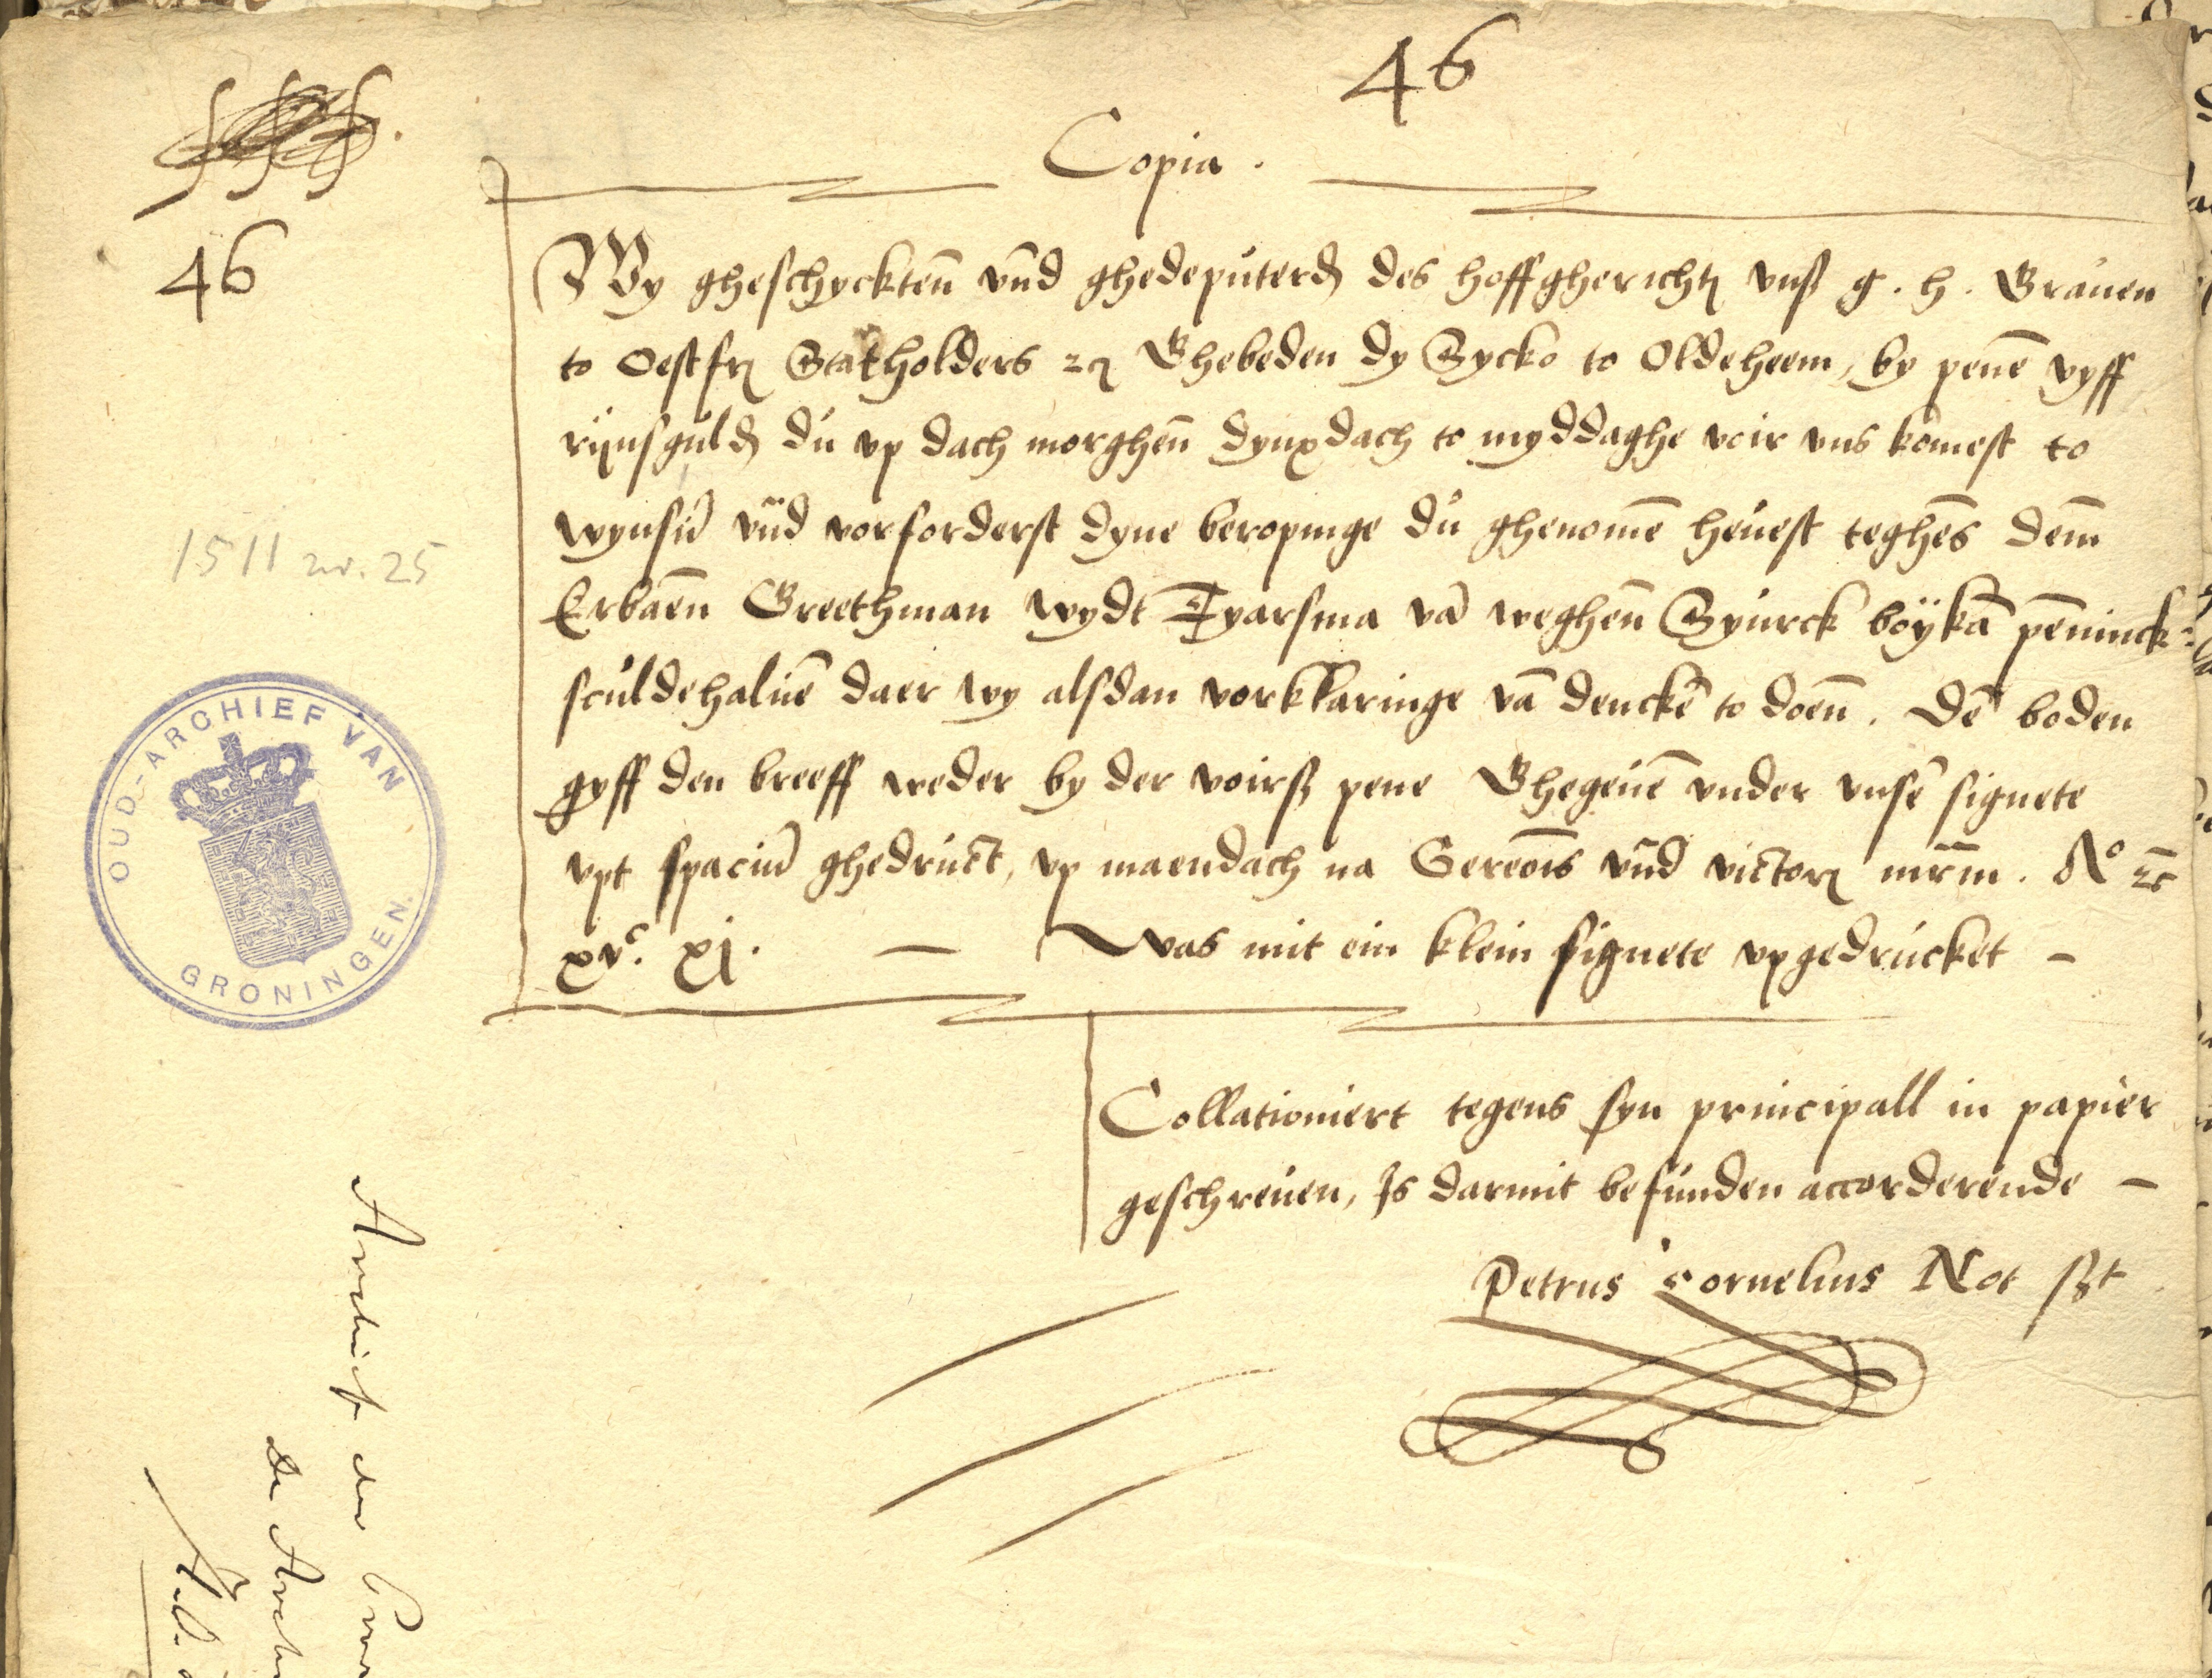 46
Copia.
46
Wy gheschyckten̄ vn̄d ghedeputerd des hoffgherichtz vnß g. h. Grauen
to Oestfrz Statholders ꝛc Ghebeden dy Sycko to Oldeheem, by penē vyff
rijnsguld du vp dach morghen̄ dynxdach to myddaghe voir vns komest to
wynsū vn̄d vorforderst dyne beropinge du ghenomē heuest teghēs dem̄
Erbaen̄ Greethman wydt Tyarsma vā weghen̄ Syurck boÿkā pēninck-
sculdehaluē daer wy alsdan vorklaringe vā denckē to doen̄. Dē boden
gyff den breeff weder by der voirß pene Ghegeuē vnder vnsē signete
vpt spaciū ghedruct, vp maendach na Gereoīs vn̄d victorz mr̄m. Aº ꝛc
xvᶜ. xj. — Was mit ein klein signete vpgedrucket —
1511 nr. 25
OUD-ARCHIEF VAN
GRONINGEN.
Collationiert tegens syn principall in papier
geschreuen, Is darmit befunden accorderende —
Petrus Cornelius Not sßt
Archief der Prov
De Arch